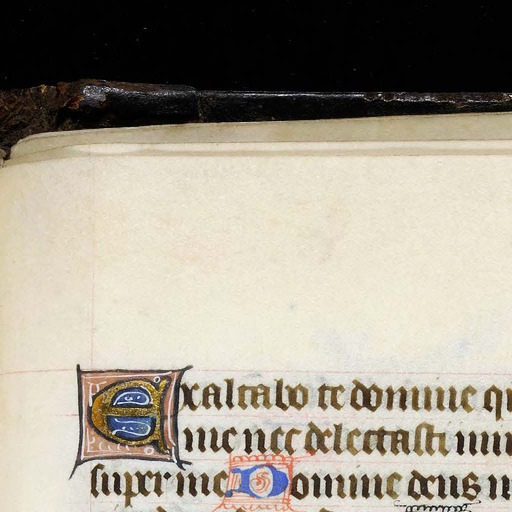 Exaltabo te domine q
me nec delectasti
super me Domine deus